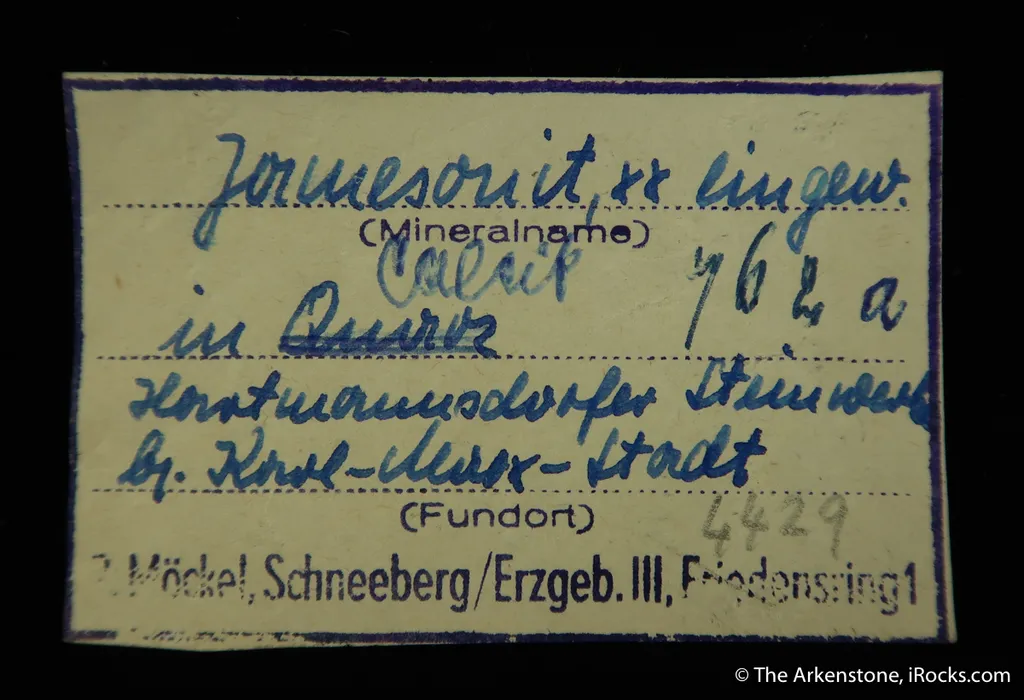 Jamesonit, xx eingew.
(Mineralname)
Calcit 762 a
in Quarz
Hartmannsdorfer Steinwerk
b. Karl-Marx-Stadt
(Fundort)
4429
Möckel, Schneeberg/Erzgeb. III, Friedensring 1
© The Arkenstone, iRocks.com